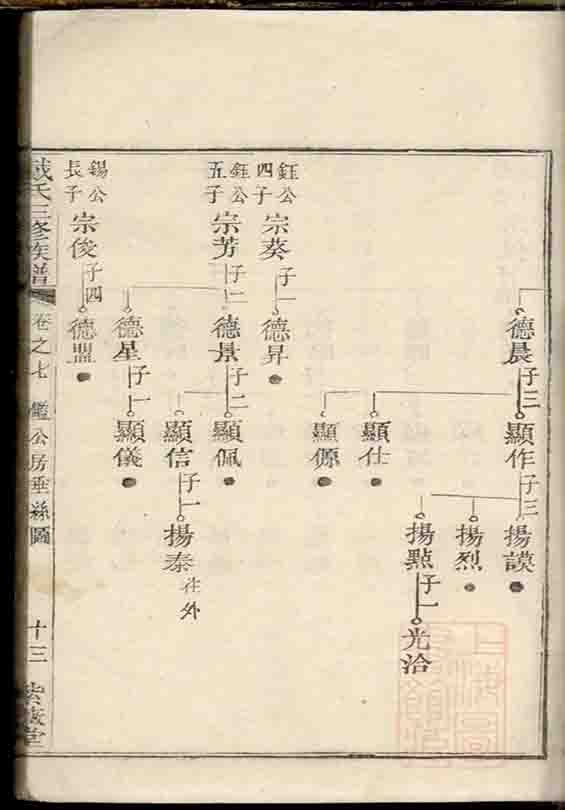 德晨
子三
顯作
子三
揚謨
揚烈
揚點
子一
光洽
顯仕
顯傆
鈺公
四子
宗葵
子一
德昇
鈺公
五子
宗芳
子二
德景
子二
顯佩
顯信
子一
揚泰
往外
德星
子一
顯儀
錫公
長子
宗俊
子四
德盟
氏三修族譜
卷之七
鑑公房垂絲圖
十三
上海圖